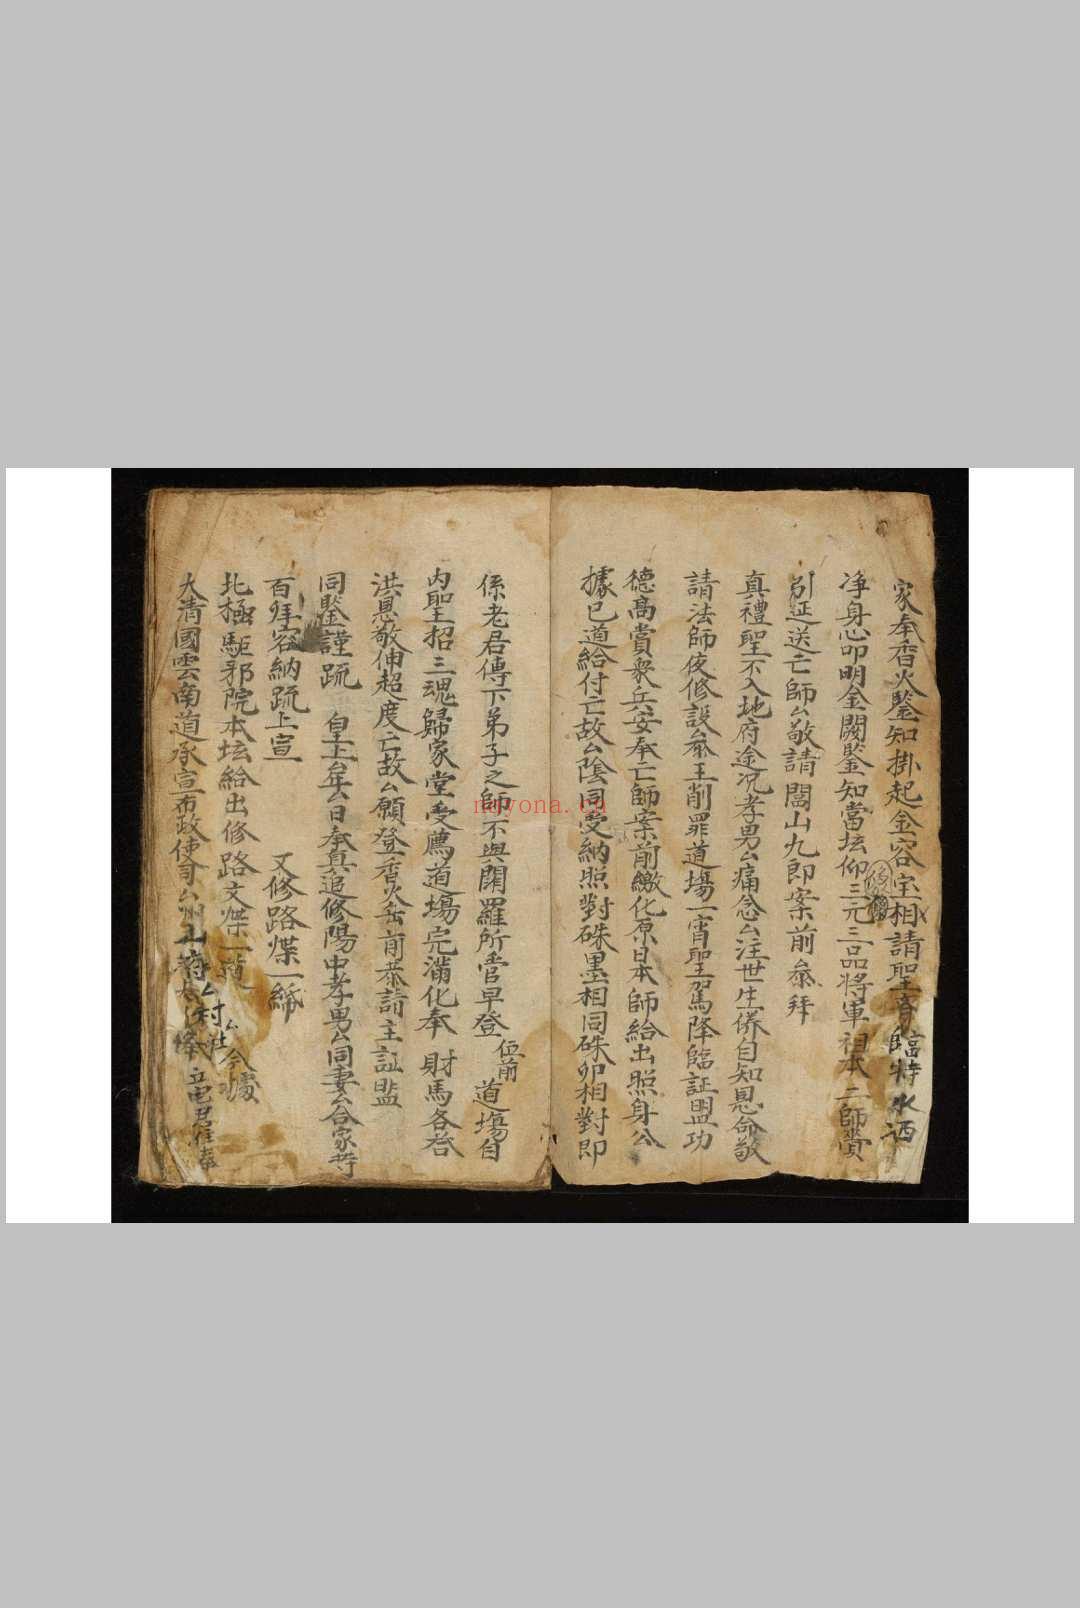 家奉香火鍳知掛起金容宝相請聖賁臨特水洒
净身心叩明金闕鍳知當坛仰三元三品將軍祖本二師賞
引証送亡師厶敬請閭山九郎案前叅拜
真禮聖不入地府途况孝男厶痛念厶注世生俻自知恩命敬
請法師依修設叅王削罪道場一霄聖駕降臨証盟功
德高賞衆兵安奉亡師案前繳化原日本師給出照身公
據已道給付亡故厶陰同受納照對硃墨相同硃卯相對即
係老君傳下弟子之師不與閻羅所管早登位前道塲自
内聖招三魂歸家堂受薦道塲完滿化奉 財馬各呇
洪恩敬伸超度亡故厶願登香火岳前恭請主証盟
同鍳謹疏 皇上厶年厶日奉真追修陽中孝男厶同妻厶合家等
百拜容納疏上宣
又修路煤一綈
北極駈邪院本坛給出修路文煤一道 今據
大清國雲南道承宣布政使司厶州 厶村 奉
nayona.cn